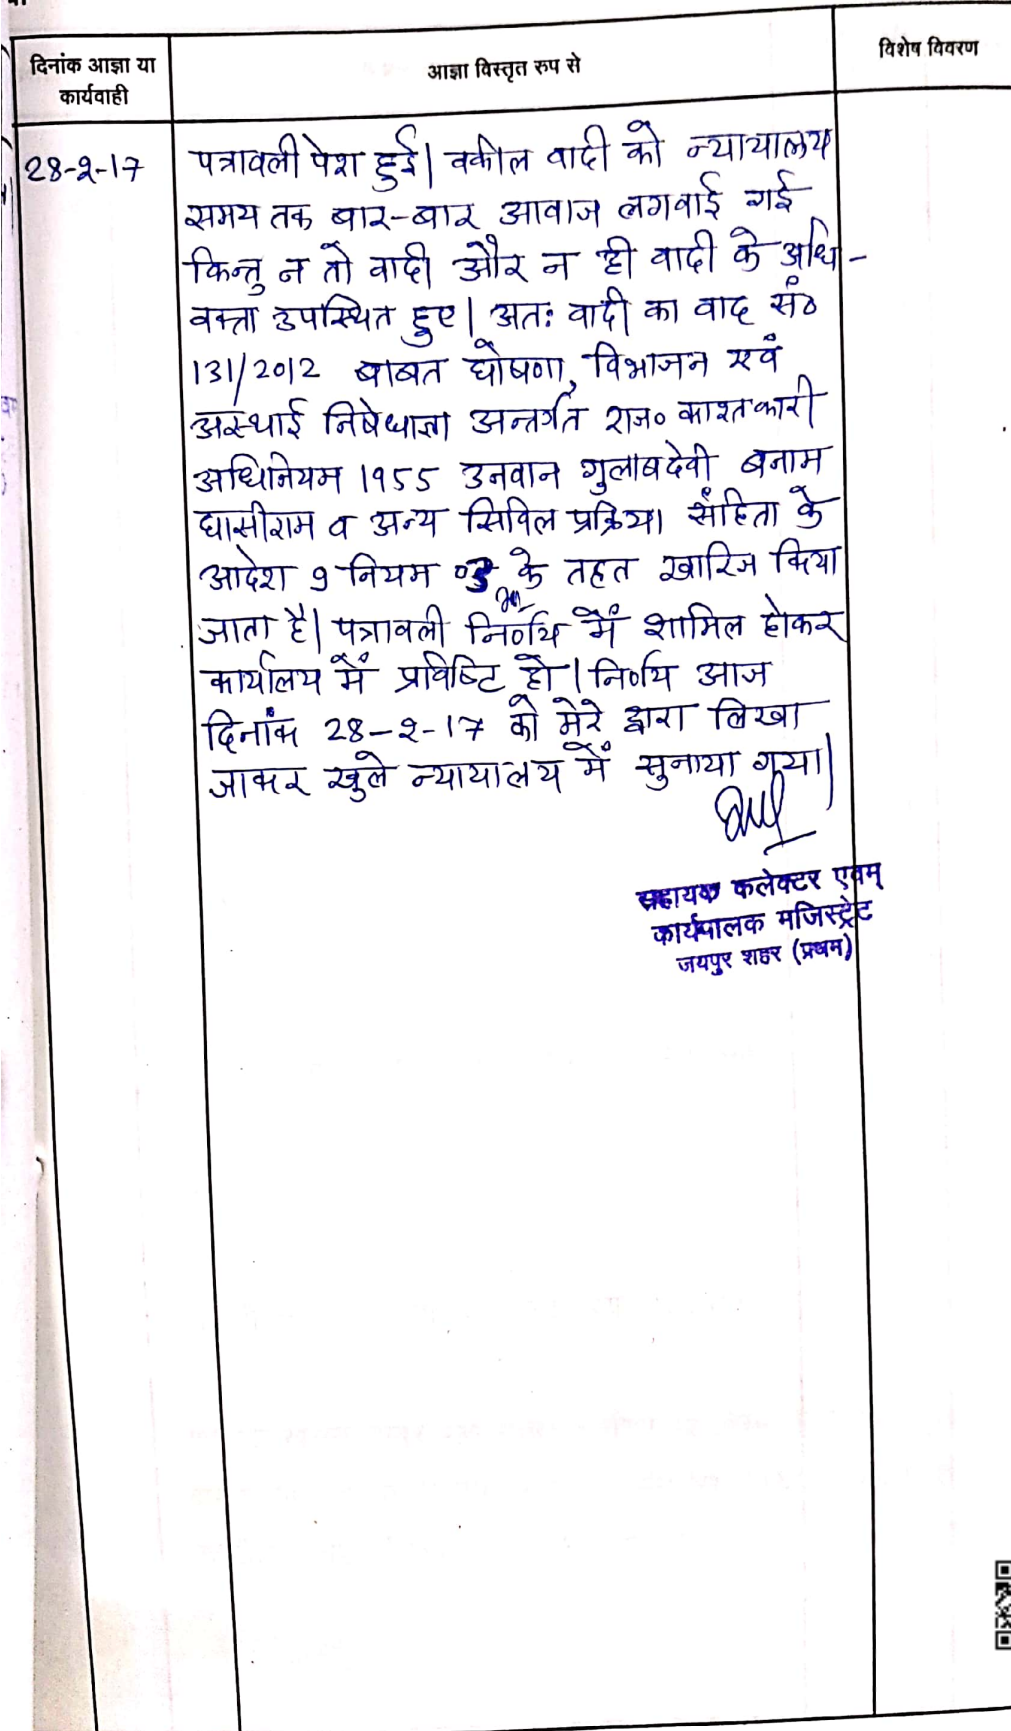 दिनांक आज्ञा या
कार्यवाही
आज्ञा विस्तृत रुप से
विशेष विवरण
28-2-17
पत्रावली पेश हुई। वकील वादी को न्यायालय
समय तक बार-बार आवाज लगवाई गई
किन्तु न तो वादी और न ही वादी के अधि-
वक्ता उपस्थित हुए। अतः वादी का वाद सं०
131/2012 बाबत घोषणा, विभाजन एवं
अस्थाई निषेधाज्ञा अन्तर्गत राज० काश्तकारी
अधिनियम 1955 उनवान गुलाबदेवी बनाम
घासीराम व अन्य सिविल प्रक्रिया संहिता के
आदेश 9 नियम 03 के तहत खारिज किया
जाता है। पत्रावली निर्णय में शामिल होकर
कार्यालय में प्रविष्टि हो। निर्णय आज
दिनांक 28-2-17 को मेरे द्वारा लिखा
जाकर खुले न्यायालय में सुनाया गया।
सहायक कलेक्टर एवम्
कार्यपालक मजिस्ट्रेट
जयपुर शहर (प्रथम)